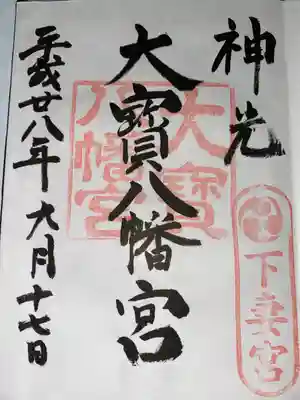 神光
下妻宮
大寳八幡宮
大寶
八幡宮
平成廿八年六月十七日